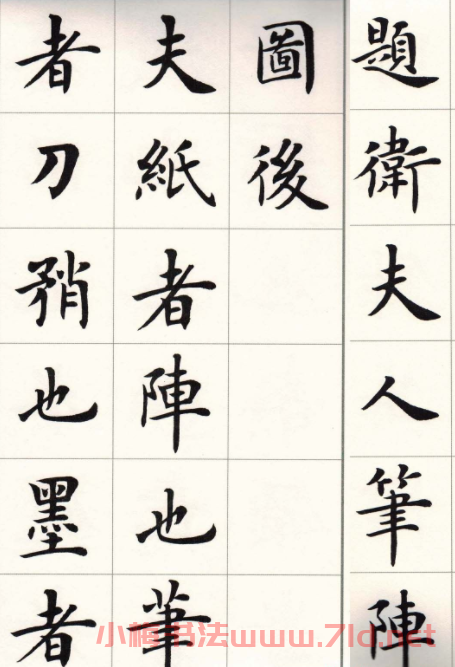 題衛夫人筆陣
圖後
夫紙者陣也筆
者刀矟也墨者
书法www.7ld.net